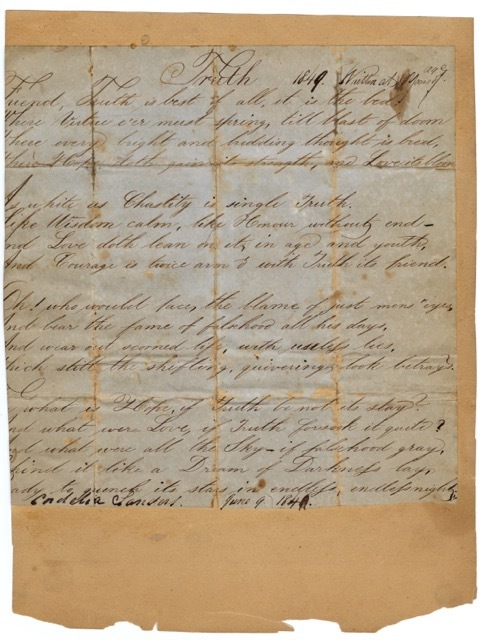 Truth 1849. Written at
Friend, Truth is best of all, it is the bed.
Where Virtue e'er must spring, till blast of doom
Where every bright and budding thought is bred,
Where Hope doth gain its strength, and Love its bloom
As white as Chastity is single Truth.
Like Wisdom calm, like Honour without end
And Love doth lean on it, in age and youth,
And Courage is twice arm'd with Truth its friend.
Oh! who would face, the blame of just mens' eyes,
And bear the fame of falsehood all his days,
And wear out scorned life, with useless lies,
Which still the shifting, quivering look betrays.
For what is Hope, if Truth be not its stay?
And what were Love, if Truth forsook it quite?
And what were all the Sky - if falsehood gray,
Behind it like a Dream of Darkness lay,
Ready to quench its stars in endless, endless night
Cordelia June 9 184